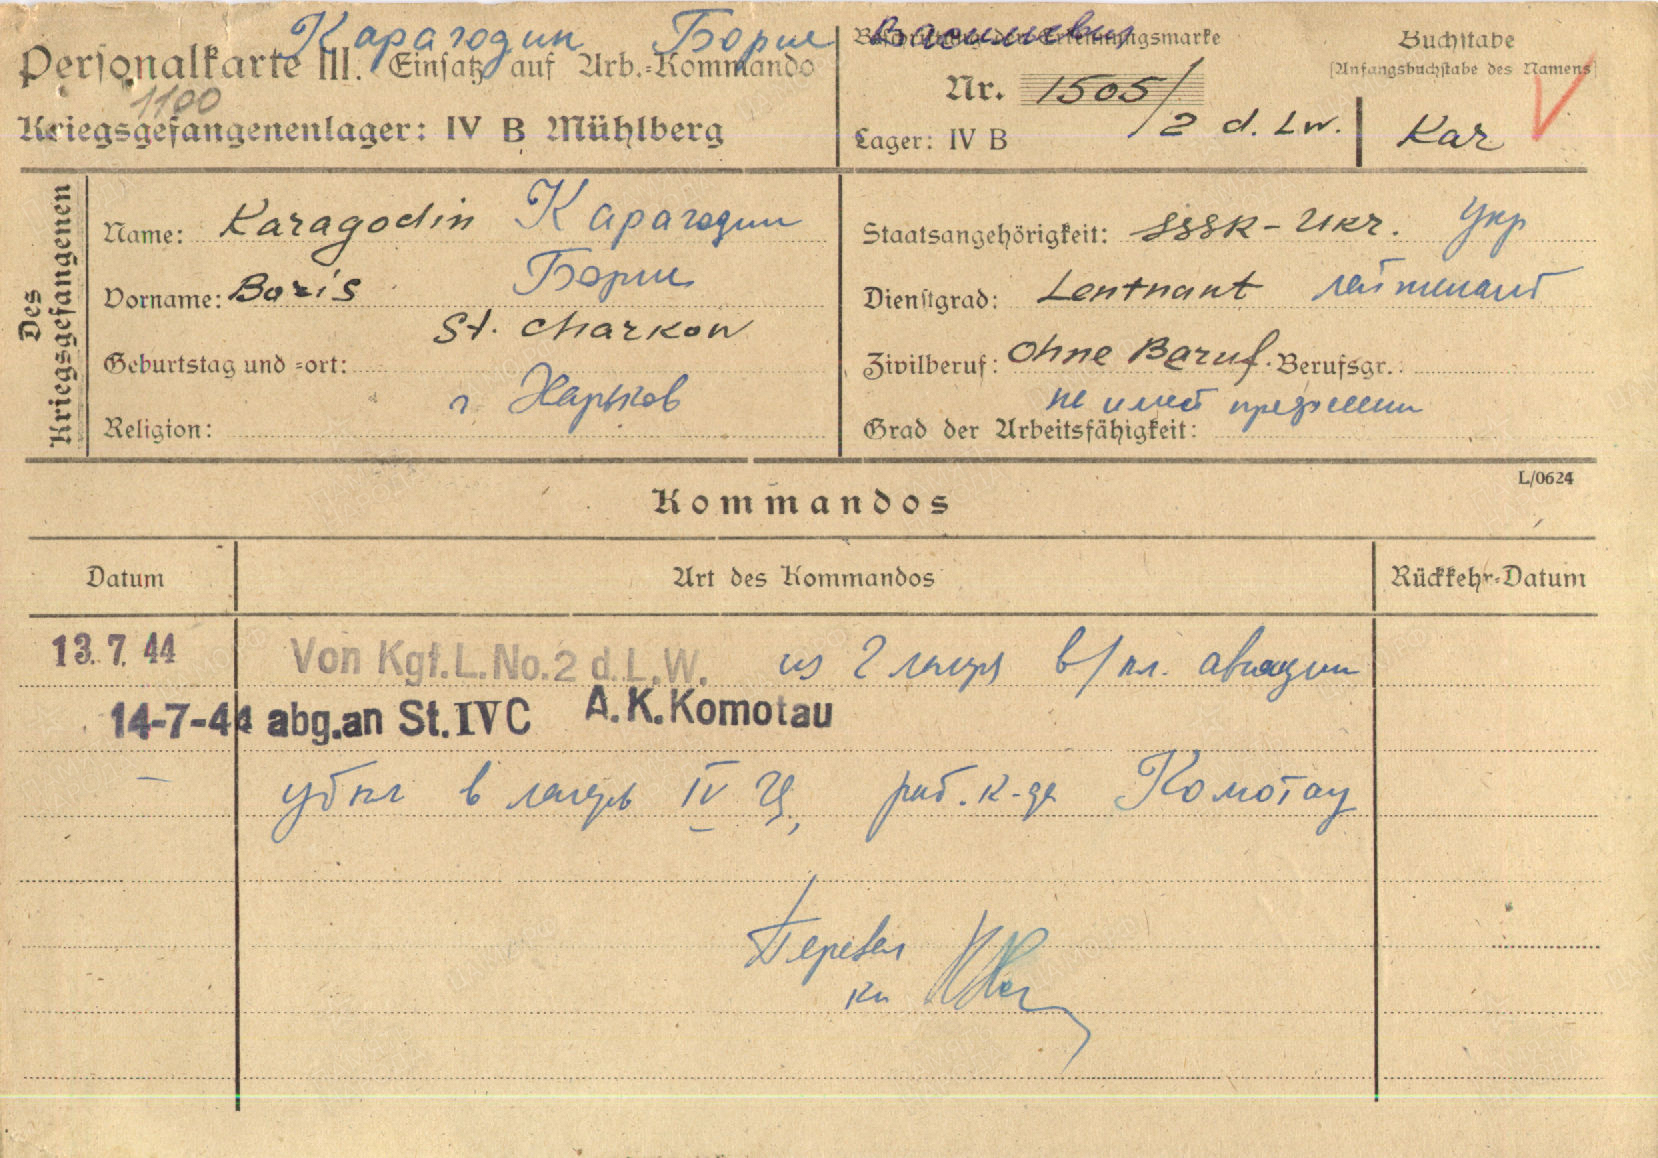 Карагодин Борис Васильевич
Personalkarte III. Einsatz auf Arb.=Kommando
1100
Kriegsgefangenenlager: IV B Mühlberg
Beschriftung der Erkennungsmarke
Nr. 1505/2 d. Lw.
Lager: IV B
Buchstabe
(Anfangsbuchstabe des Namens)
Kar
Des Kriegsgefangenen
Name: Karagodin Карагодин
Vorname: Boris Борис
St. Charkow
Geburtstag und =ort:
г Харьков
Religion:
Staatsangehörigkeit: SSSR - Ukr. Укр
Dienstgrad: Lentnant лейтенант
Zivilberuf: Ohne Beruf. Berufsgr.:
не имеет профессии
Grad der Arbeitsfähigkeit:
L/0624
Kommandos
Datum Art des Kommandos Rückkehr=Datum
13. 7. 44 Von Kgf.L.No.2 d.L.W. из 2 лагеря в/пл. авиации
14-7-44 abg.an St.IVC A.K.Komotau
убыл в лагерь IV Ц, раб. к-да Комотау
Перевел